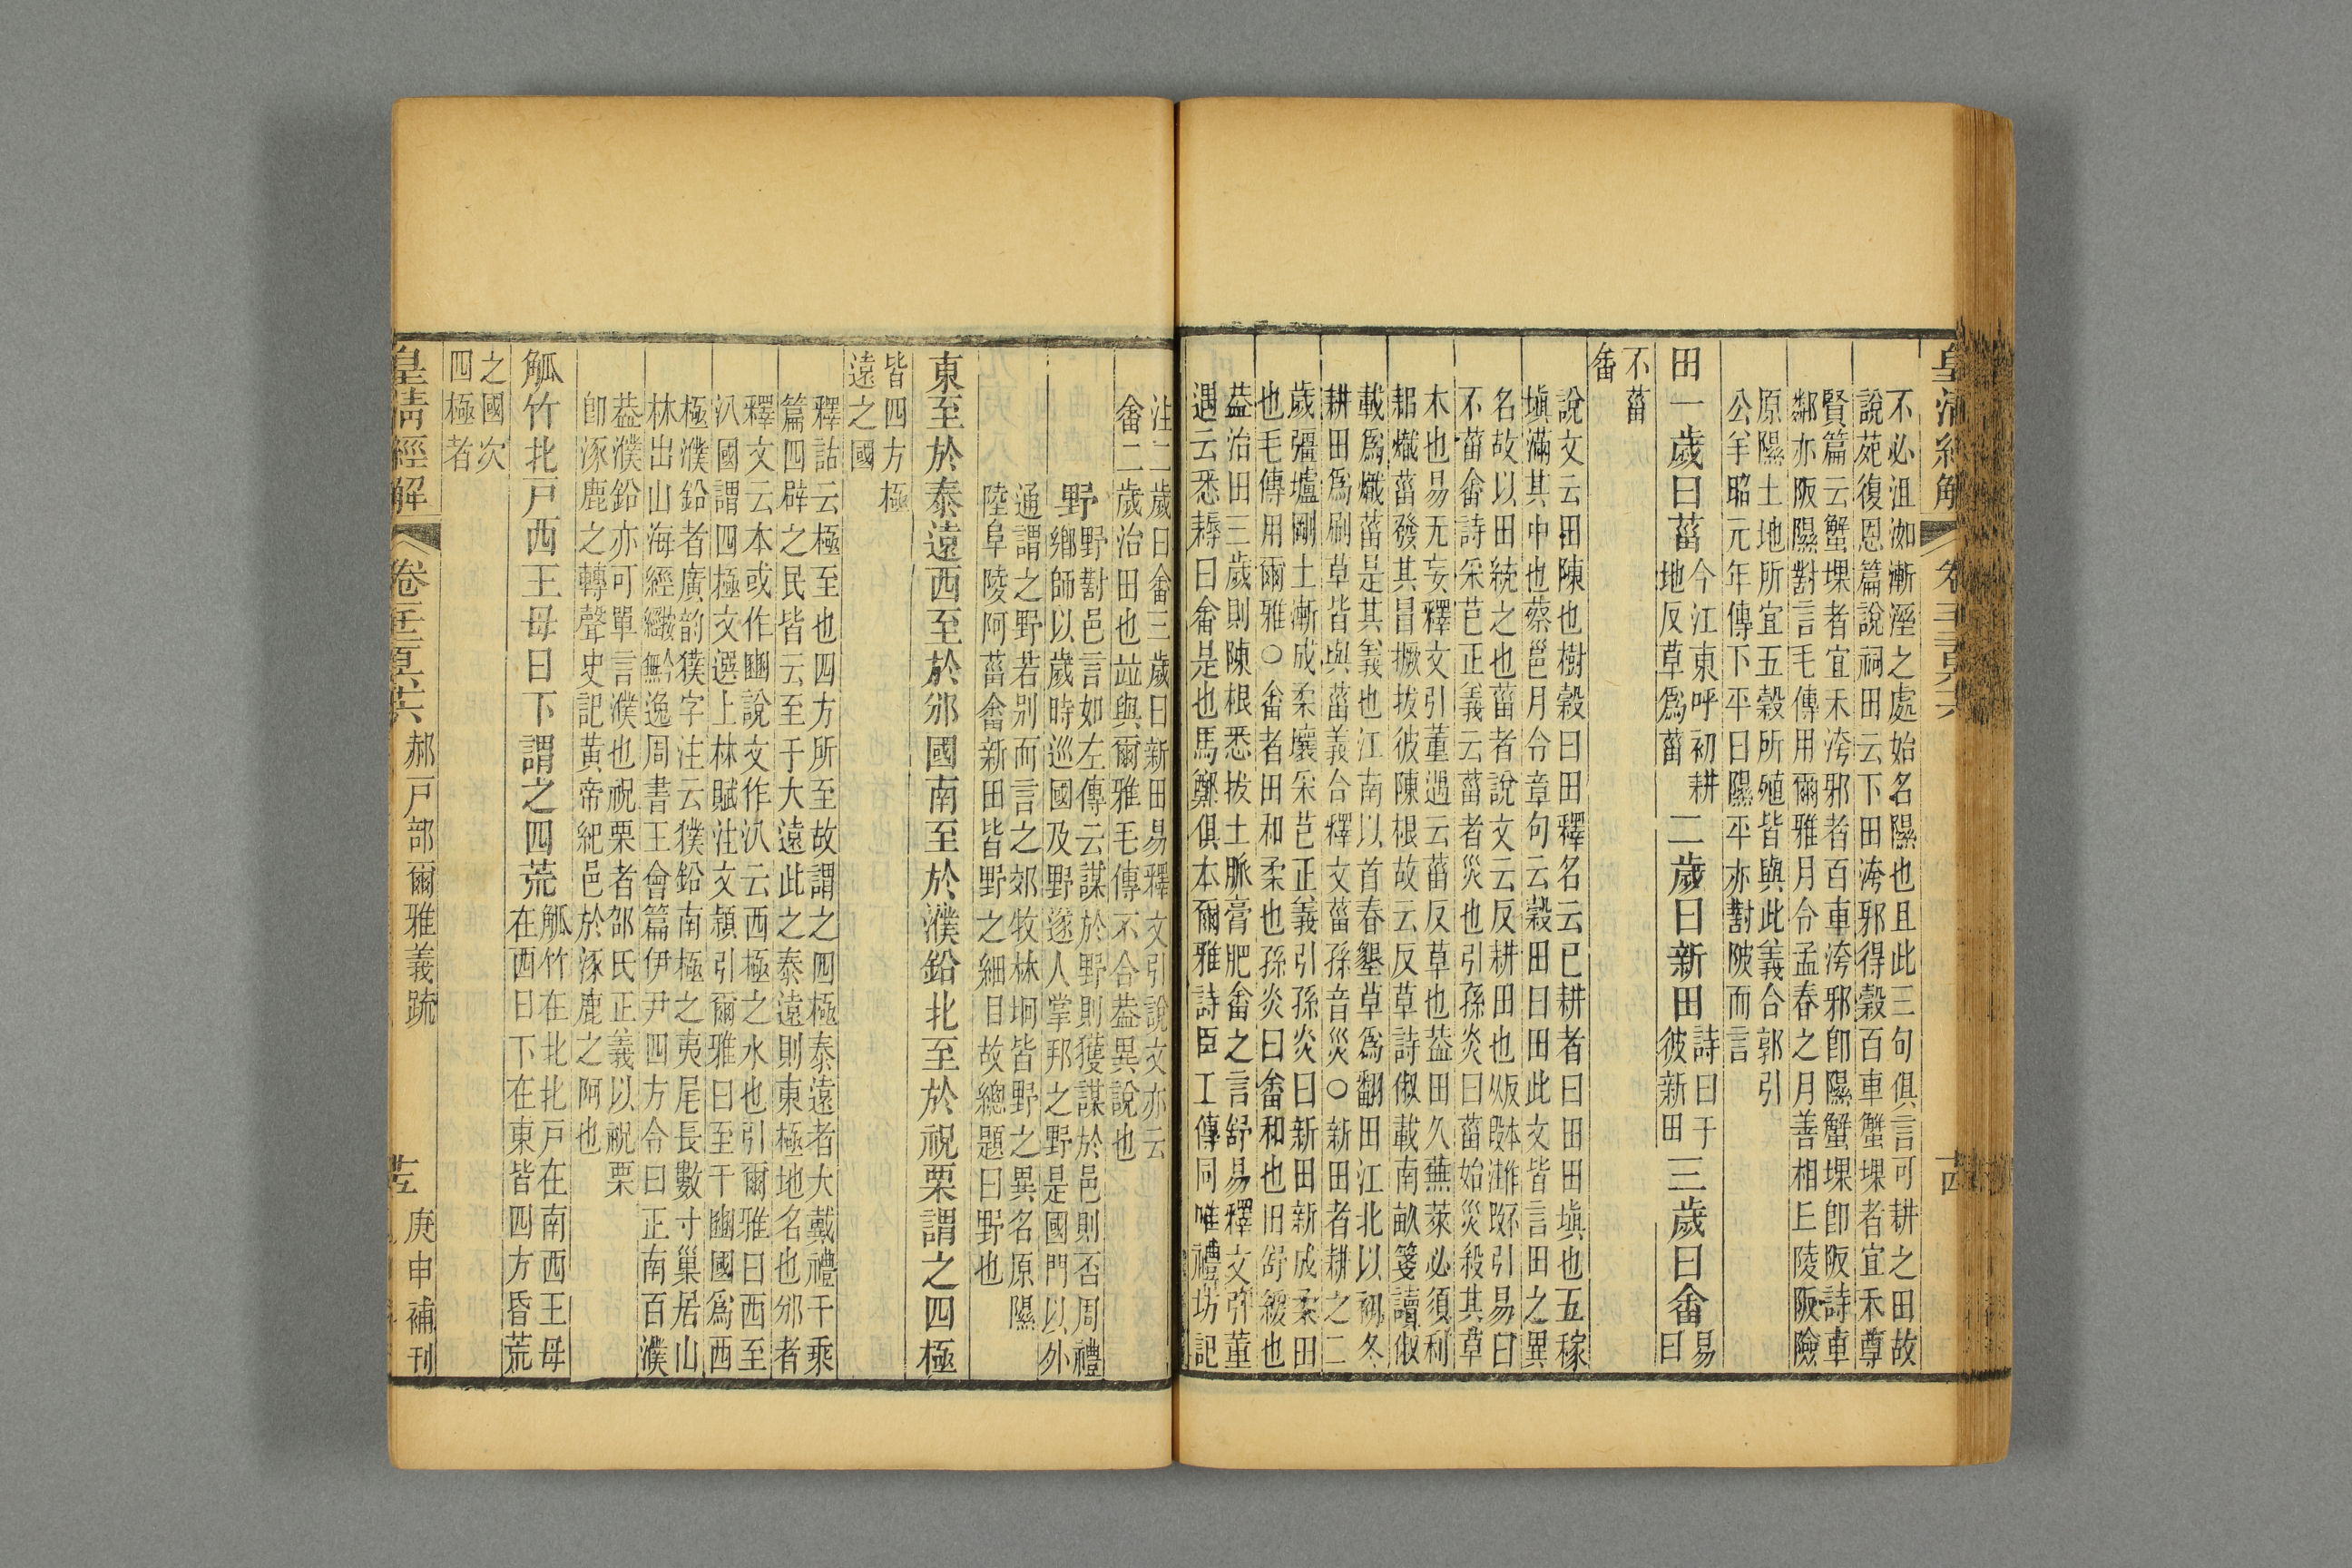 不必沮洳漸溼之處始名隰也且此三句俱言可耕之田故
說苑復恩篇說祠田云下田洿邪得穀百車蟹堁者宜禾尊
賢篇云蟹堁者宜禾洿邪者百車洿邪卽隰蟹堁卽阪詩車
鄰亦阪隰對言毛傳用爾雅月令孟春之月善相丘陵阪險
原隰土地所宜五穀所殖皆與此義合郭引
公羊昭元年傳下平曰隰平亦對陂而言
田一歲曰菑今江東呼初耕
地反草爲菑二歲曰新田詩曰于
彼新田三歲曰畬易曰
不菑
畬
說文云田陳也樹穀曰田釋名云已耕者曰田田塡也五稼
塡滿其中也蔡邕月令章句云穀田曰田此文皆言田之異
名故以田統之也菑者說文云反耕田也引易曰
不菑畬詩采芑正義云菑者災也引孫炎曰菑始災殺其草
木也易无妄釋文引董遇云菑反草也葢田久蕪萊必須利
耜熾菑發其冒橛拔彼陳根故云反草詩俶載南畝箋讀俶
載爲熾菑是其義也江南以首春墾草爲翻田江北以初冬
耕田爲刷草皆與菑義合釋文菑孫音災○新田者耕之二
歲彊壚剛土漸成柔壤采芑正義引孫炎曰新田新成柔田
也毛傳用爾雅○畬者田和柔也孫炎曰畬和也田舒緩也
葢治田三歲則陳根悉拔土脈膏肥畬之言舒易釋文引董
遇云悉耨曰畬是也馬鄭俱本爾雅詩臣工傳同唯禮坊記
注二歲曰畬三歲曰新田易釋文引說文亦云
畬二歲治田也竝與爾雅毛傳不合葢異說也
野野對邑言如左傳云謀於野則獲謀於邑則否周禮
鄉師以歲時巡國及野遂人掌邦之野是國門以外
通謂之野若別而言之郊牧林坰皆野之異名原隰
陵阜陵阿菑畬新田皆野之細目故總題曰野也
東至於泰遠西至於邠國南至於濮鉛北至於祝栗謂之四極
皆四方極
遠之國
釋詁云極至也四方所至故謂之四極泰遠者大戴禮千乘
篇四辟之民皆云至于大遠此之泰遠則東極地名也邠者
釋文云本或作豳說文作汃云西極之水也引爾雅曰西至
汃國謂四極文選上林賦注文穎引爾雅曰至于豳國爲西
極濮鉛者廣韵獛字注云獛鉛南極之夷尾長數寸巢居山
林出山海經逸周書王會篇伊尹四方令曰正南百濮
葢濮鉛亦可單言濮也祝栗者邵氏正義以祝栗
卽涿鹿之轉聲史記黃帝紀邑於涿鹿之阿也
觚竹北戸西王母日下謂之四荒觚竹在北北戸在南西王母
在西日下在東皆四方昏荒
之國次
四極者
皇清經解 卷千二百五十六 郝戸部爾雅義疏 庚申補刊